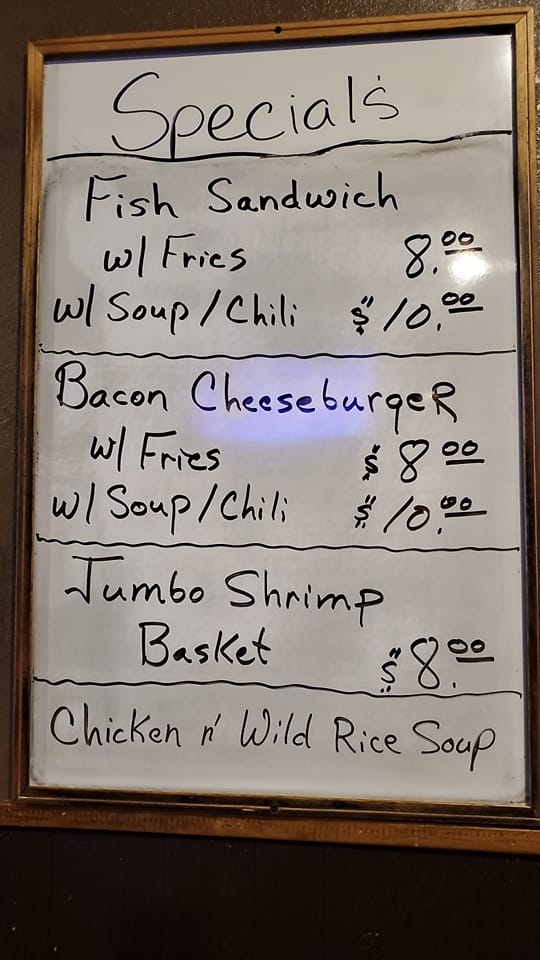 Specials
Fish Sandwich
w/ Fries 8.00
w/ Soup/Chili $10.00
Bacon CheeseburgeR
w/ Fries $8.00
w/ Soup/Chili $10.00
Jumbo Shrimp
Basket $8.00
Chicken n' Wild Rice Soup